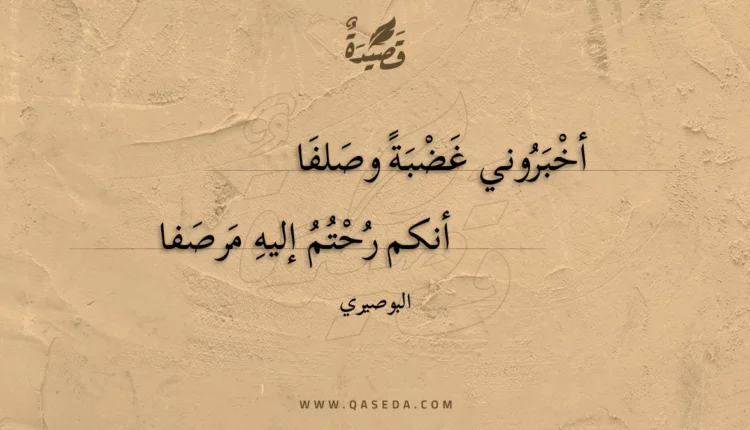 قَصِيدَةٌ
أخْبَرُوني غَضْبَةً وصَلفَا
أنكم رُحْتُمُ إليهِ مَرصَفا
البوصيري
WWW.QASEDA.COM